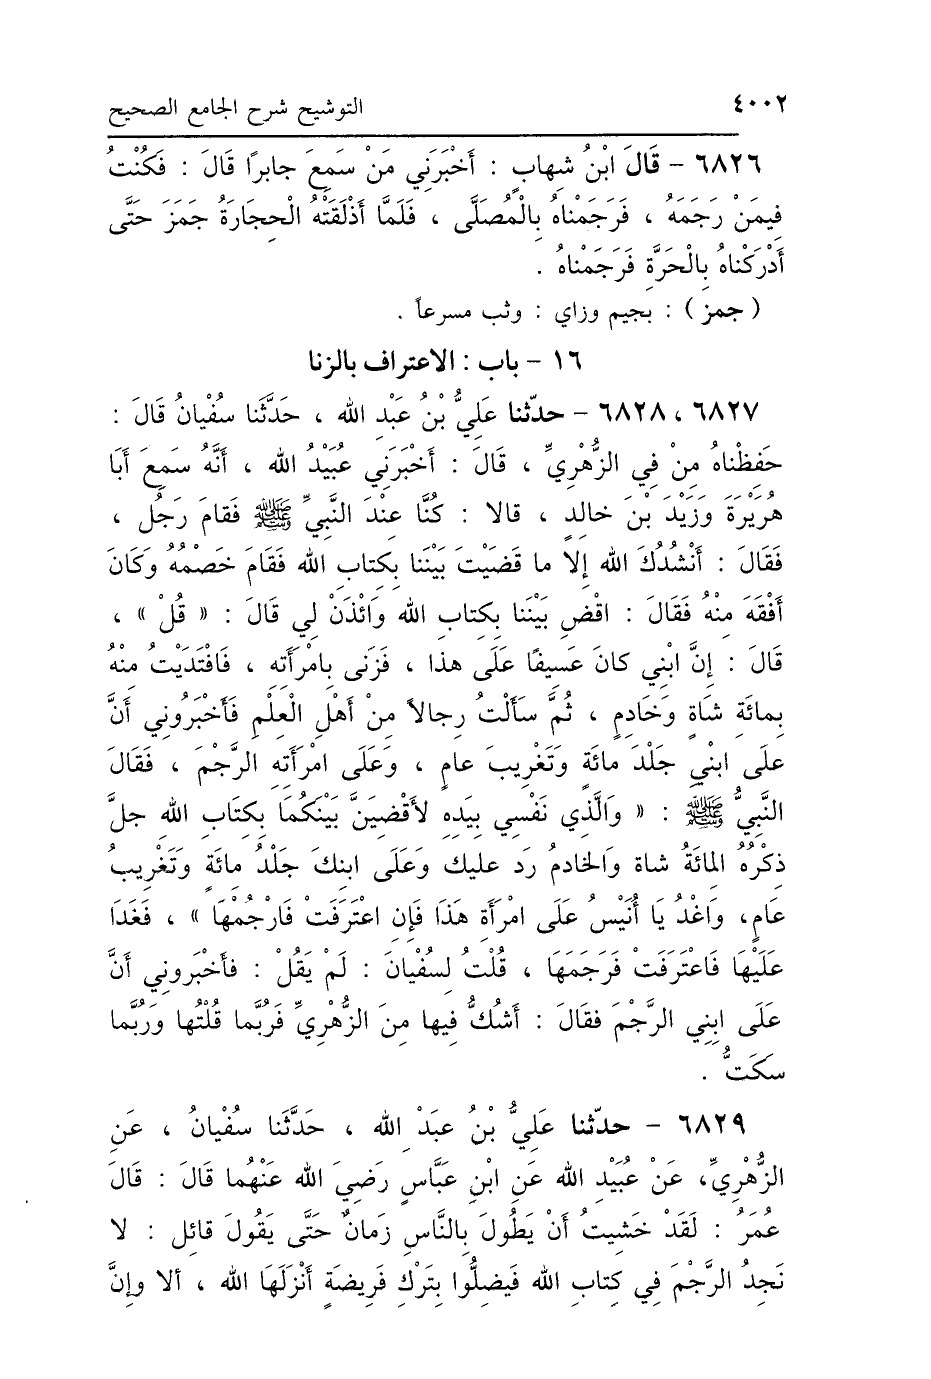 ٤٠٠٢ التوشيح شرح الجامع الصحيح
٦٨٢٦ - قَالَ ابْنُ شهابٍ : أَخْبَرَني مَنْ سَمِعَ جابرًا قَالَ : فَكُنْتُ
فِيمَنْ رَجَمَهُ ، فَرَجَمْنَاهُ بِالْمُصَلَّى ، فَلَمَّا أَذْلَقَتْهُ الْحِجَارَةُ جَمَزَ حَتَّى
أَدْرَكْنَاهُ بِالْحَرَّةِ فَرَجَمْنَاهُ .
( جمز ) : بجيم وزاي : وثب مسرعاً .
١٦ - باب : الاعتراف بالزنا
٦٨٢٧ ، ٦٨٢٨ - حدّثنا عَلِيُّ بْنُ عَبْدِ الله ، حَدَّثَنا سُفْيانُ قَالَ :
حَفِظْناهُ مِنْ فِي الزُّهْرِيِّ ، قَالَ : أَخْبَرَنِي عُبَيْدُ الله ، أَنَّهُ سَمِعَ أَبَا
هُرَيْرَةَ وَزَيْدَ بْنَ خالِدٍ ، قالا : كُنَّا عِنْدَ النَّبِيِّ ﷺ فَقامَ رَجُل ،
فَقَالَ : أَنْشُدُكَ الله إلا ما قَضَيْتَ بَيْنَنا بِكتابِ الله فَقَامَ خَصْمُهُ وَكَانَ
أَفْقَهَ مِنْهُ فَقَالَ : اقْضِ بَيْنَنا بِكتابِ الله وَائْذَنْ لِي قَالَ : « قُلْ » ،
قَالَ : إِنَّ ابْنِي كانَ عَسِيفًا عَلَى هذا ، فَزَنَى بِامْرَأَتِهِ ، فَافْتَدَيْتُ مِنْهُ
بِمائَةِ شَاةٍ وَخَادِمٍ ، ثُمَّ سَأَلْتُ رِجالاً مِنْ أَهْلِ الْعِلْمِ فَأَخْبَرُونِي أَنَّ
علَى ابْنِي جَلْدَ مائَةٍ وَتَغْرِيبَ عامٍ ، وَعَلَى امْرَأَتِهِ الرَّجْمَ ، فَقَالَ
النَّبِيُّ ﷺ : « وَالَّذِي نَفْسِي بِيَدِهِ لأَقْضِيَنَّ بَيْنَكُمَا بِكِتَابِ الله جلَّ
ذكْرُهُ المائَةُ شاة وَالخادمُ رَد عليك وَعَلَى ابنكَ جَلْدُ مائَةٍ وَتَغْرِيبُ
عَامٍ، وَاغْدُ يَا أُنَيْسُ عَلَى امْرأَةِ هَذَا فَإِن اعْتَرَفَتْ فَارْجُمْهَا » ، فَغَدَا
عَلَيْها فَاعْتَرَفَتْ فَرَجَمَهَا ، قُلْتُ لِسُفْيانَ : لَمْ يَقُلْ : فأَخْبَروني أنَّ
عَلَى ابنِي الرَّجْمَ فقَالَ : أشكُّ فِيها مِنَ الزُّهْرِيِّ فَرُبَّما قُلْتُها وَرُبَّما
سكَتُّ .
٦٨٢٩ - حدّثنا عَلِيُّ بْنُ عبَدْ الله ، حَدَّثَنا سفْيانُ ، عَنِ
الزُّهْرِيِّ، عَنْ عُبَيْدِ الله عَنِ ابْنِ عبَّاسٍ رَضِيَ الله عَنْهُما قَالَ : قَالَ
عُمَرُ : لَقَدْ خَشِيتُ أَنْ يَطُولَ بِالنَّاسِ زَمانٌ حَتَّى يَقُولَ قائِل : لا
نَجِدُ الرَّجْمَ فِي كِتابِ الله فَيَضِلُّوا بِتَرْكِ فَرِيضَةٍ أَنْزَلَهَا الله ، ألا وإِنَّ